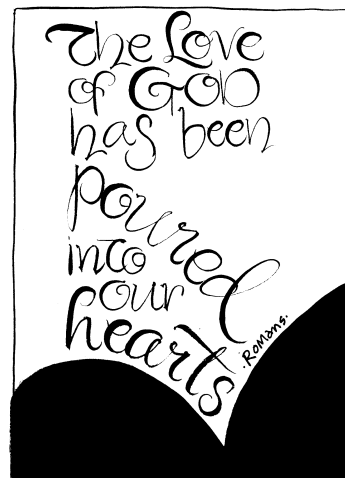 The Love
of GOD
has been
poured
into
our
hearts
·Romans·